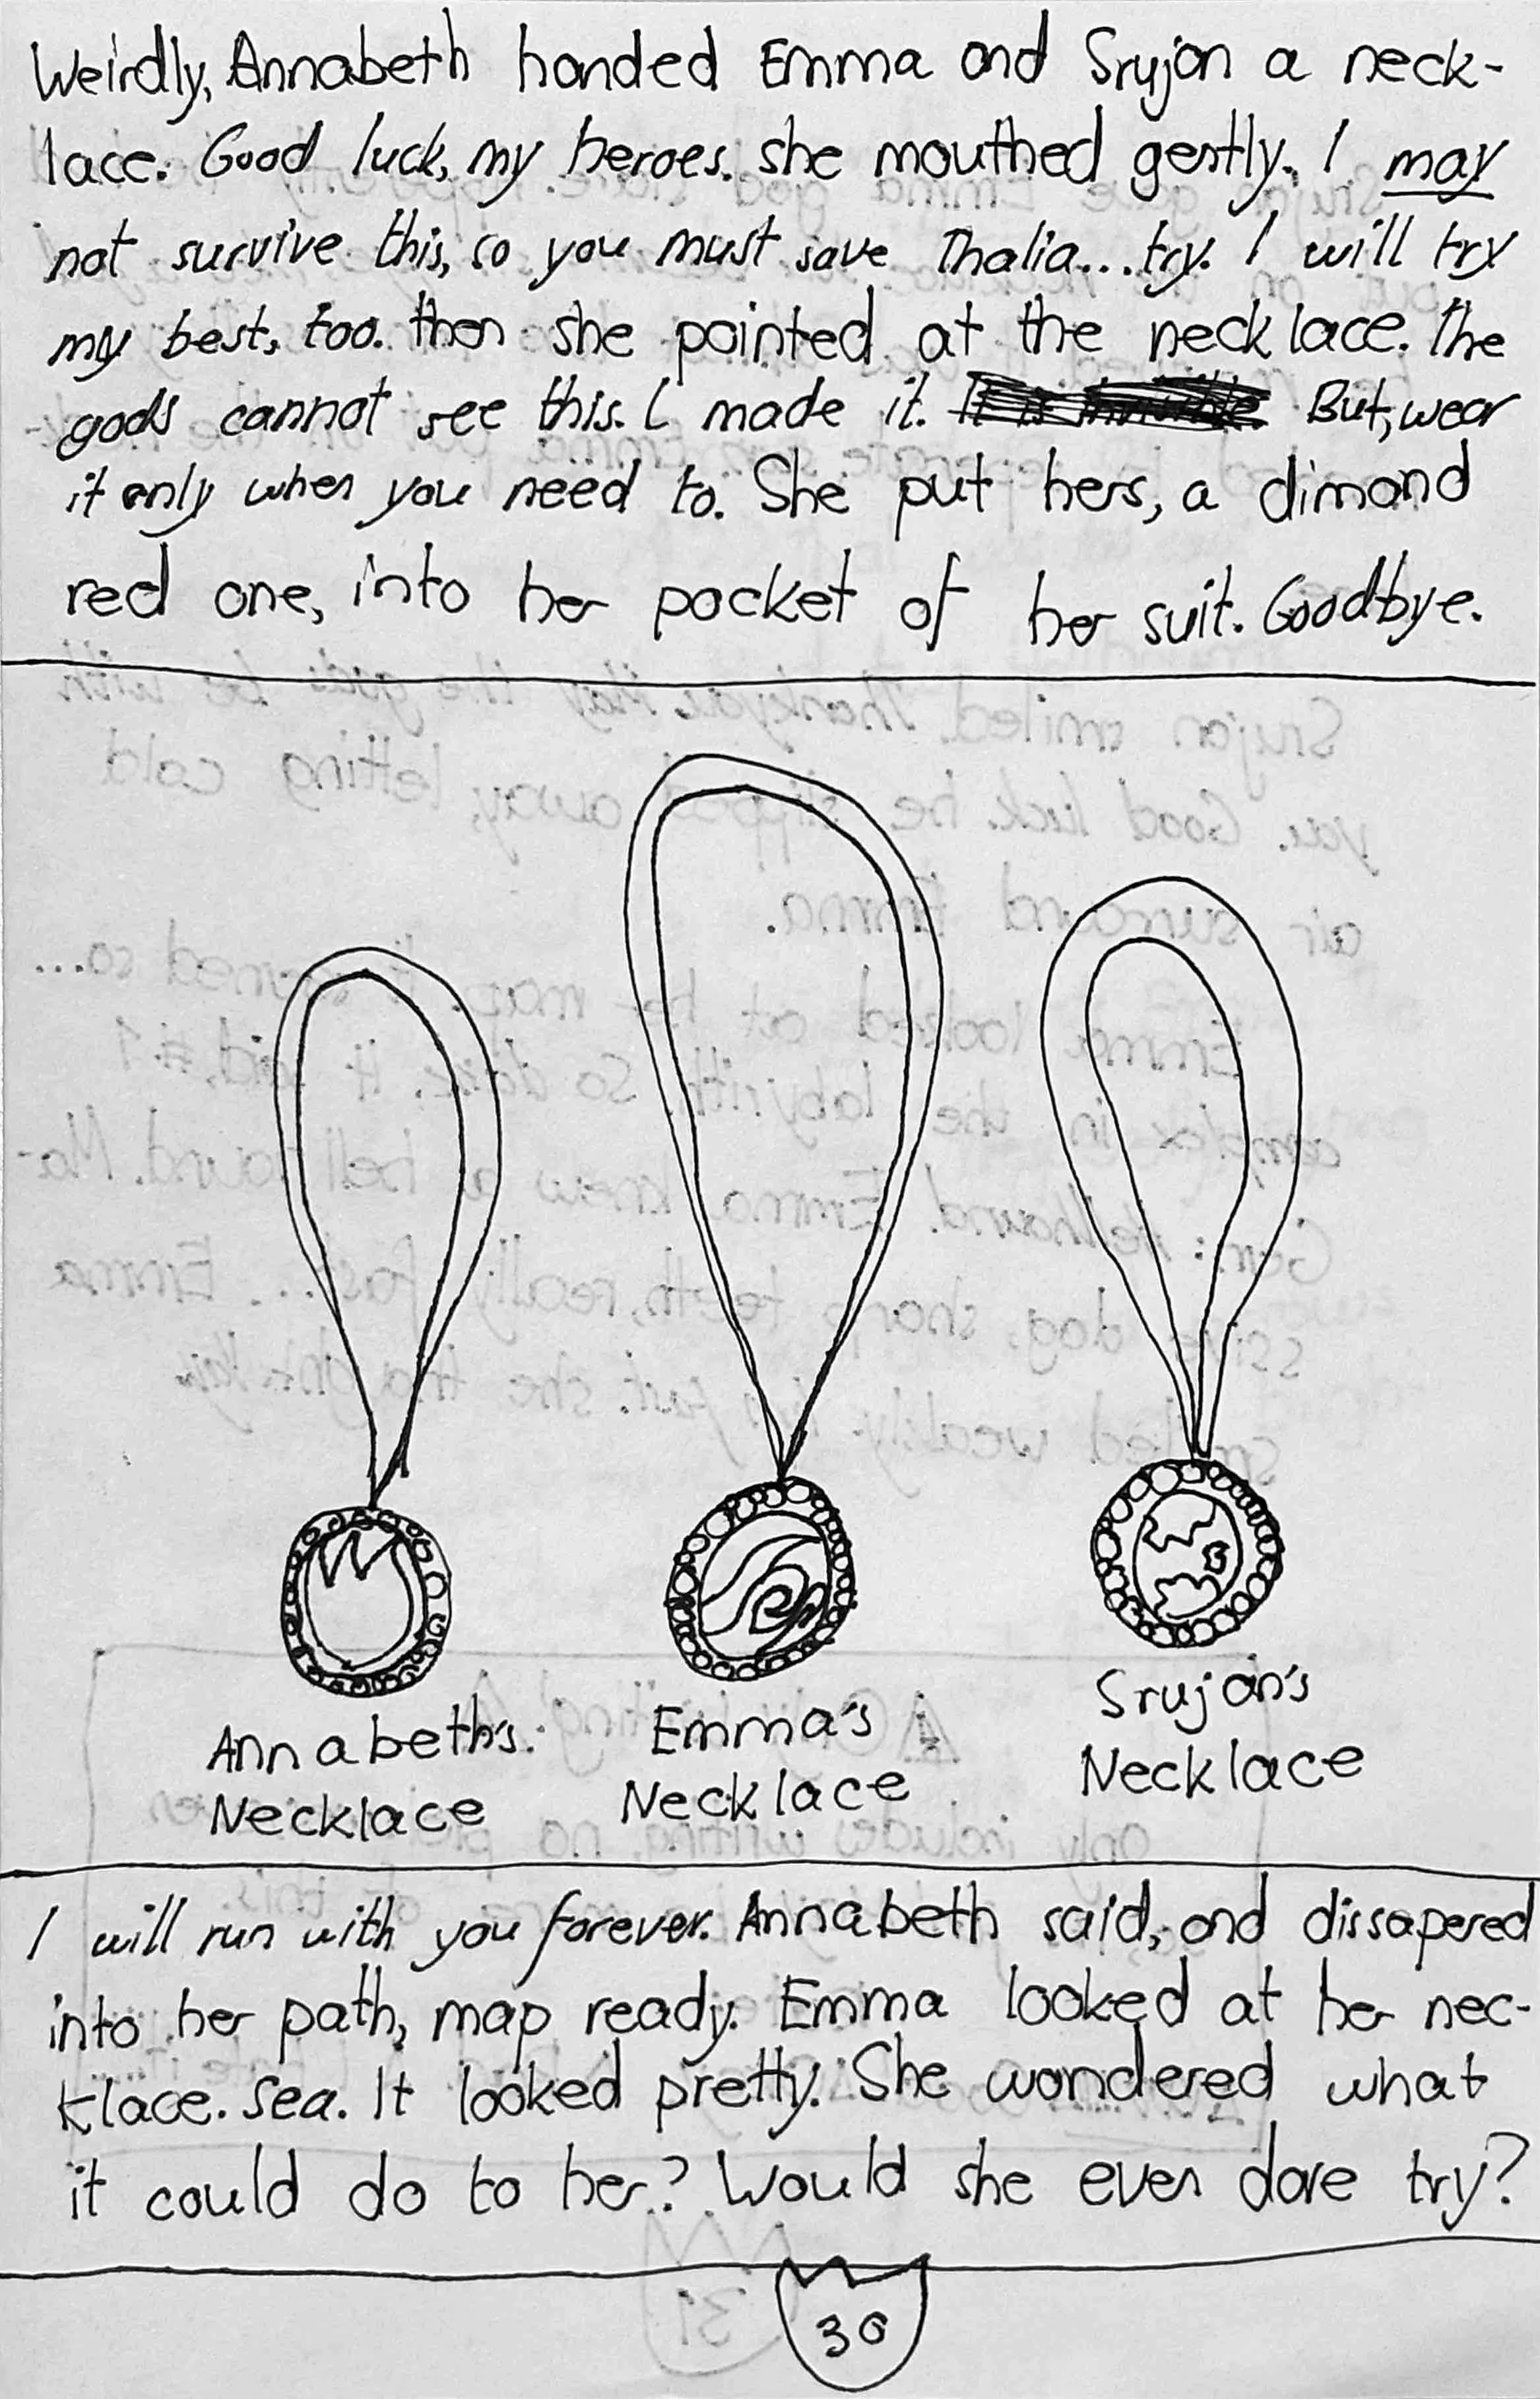 Weirdly, Annabeth handed Emma and Srujan a neck-
lace. Good luck, my heroes. she mouthed gently. I may
not survive this, so you must save Thalia...try. I will try
my best, too. then she pointed at the necklace. The
gods cannot see this. I made it. But, wear
it only when you need to. She put hers, a dimond
red one, into her pocket of her suit. Goodbye.
Annabeth's
Necklace
Emma's
Necklace
Srujan's
Necklace
I will run with you forever. Annabeth said, and dissapered
into her path, map ready. Emma looked at her nec-
klace. Sea. It looked pretty. She wondered what
it could do to her? Would she even dare try?
30